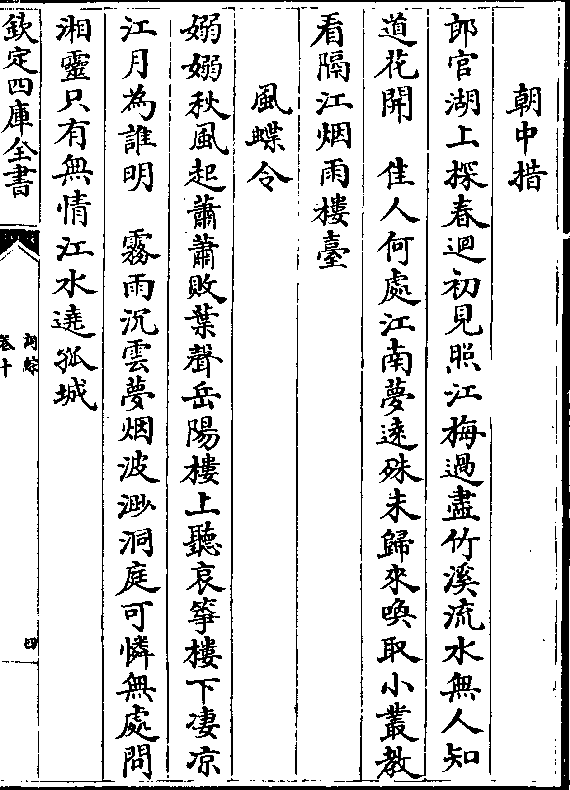 朝中措
郎官湖上探春迴初見照江梅過盡竹溪流水無人知
道花開　佳人何處江南夢遠殊未歸來喚取小叢教
看隔江烟雨樓臺
風蝶令
嫋嫋秋風起蕭蕭敗葉聲岳陽樓上聽哀箏樓下凄凉
江月為誰明　霧雨沉雲夢烟波渺洞庭可憐無處問
湘靈只有無情江水遶孤城
欽定四庫全書
詞綜
卷十
四